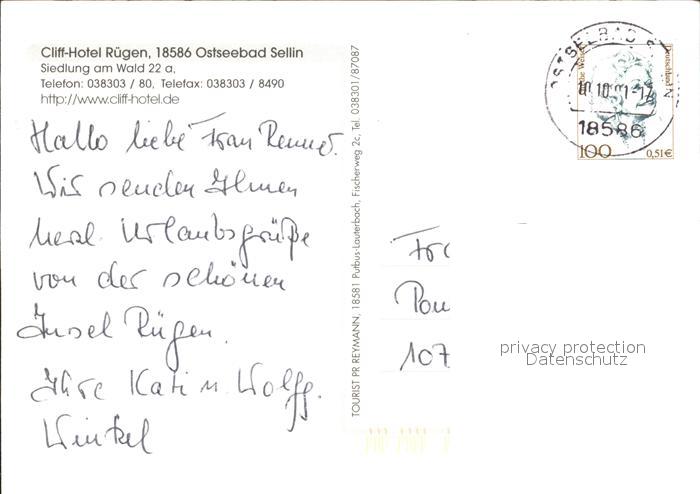 Cliff-Hotel Rügen, 18586 Ostseebad Sellin
Siedlung am Wald 22 a,
Telefon: 038303 / 80, Telefax: 038303 / 8490
http://www.cliff-hotel.de
Hallo liebe Frau Renner.
Wir senden Ihnen
herzl. Urlaubsgrüße
von der schönen
Insel Rügen.
Ihre Kati u. Wolfg.
Winkel
TOURIST PR REYMANN, 18581 Putbus-Lauterbach, Fischerweg 2c, Tel. 038301/87087
OSTSEEBAD
18586
Deutschland
100
0,51€
107
privacy protection
Datenschutz